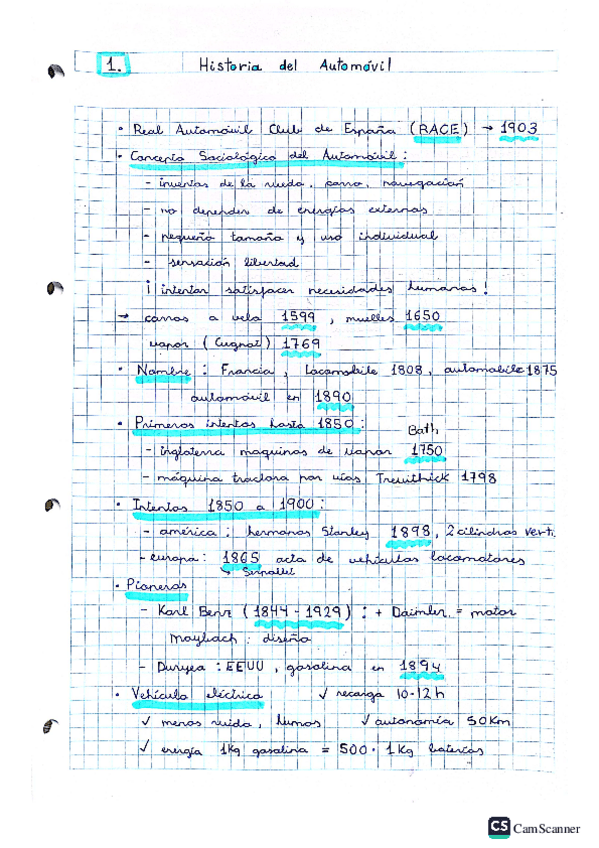 1. Historia del Automóvil
• Real Automóvil Club de España (RACE) → 1903
• Concepto Sociológico del Automóvil :
- inventos de la rueda, carro, navegación
- no depender de energías externas
- pequeño tamaño y uso individual
- sensación libertad
¡ intentar satisfacer necesidades humanas !
→ carros a vela 1599, muelles 1650
vapor (Cugnot) 1769
• Nombre : Francia, Locomobile 1808, automobile 1875
automóvil en 1890
• Primeros intentos hasta 1850 :
Bath
- inglaterra maquinas de vapor 1750
- máquina tractora por vías Trewithick 1798
• Intentos 1850 a 1900 :
- américa : hermanos Stanley 1898, 2 cilindros verti.
- europa : 1865 acta de vehículos locomotores
↳ Serpollet
• Pioneros
- Karl Benz (1844-1929) : + Daimler = motor
Maybach : diseño
- Duryea : EEUU, gasolina en 1894
• Vehículo eléctrico ✓ recarga 10-12 h
✓ menos ruido, humos ✓ autonomía 50Km
✓ energía 1Kg gasolina = 500 · 1Kg baterías
CS CamScanner